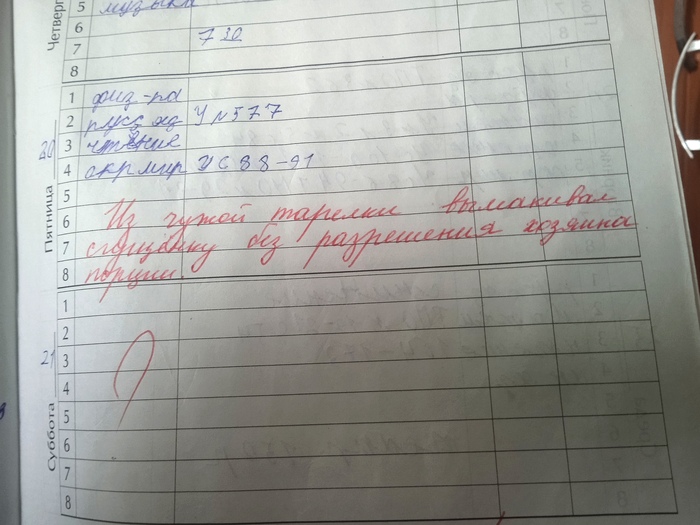 Четверг
5 музыка
6
7 730
8
Пятница
20
1 физ-ра
2 русс яз У №577
3 чтение
4 окр мир У С 88-91
5
6 Из чужой тарелки вымакивал
7 сгущенку без разрешения хозяина
8 порции.
Суббота
21
1
2
3
4
5
6
7
8